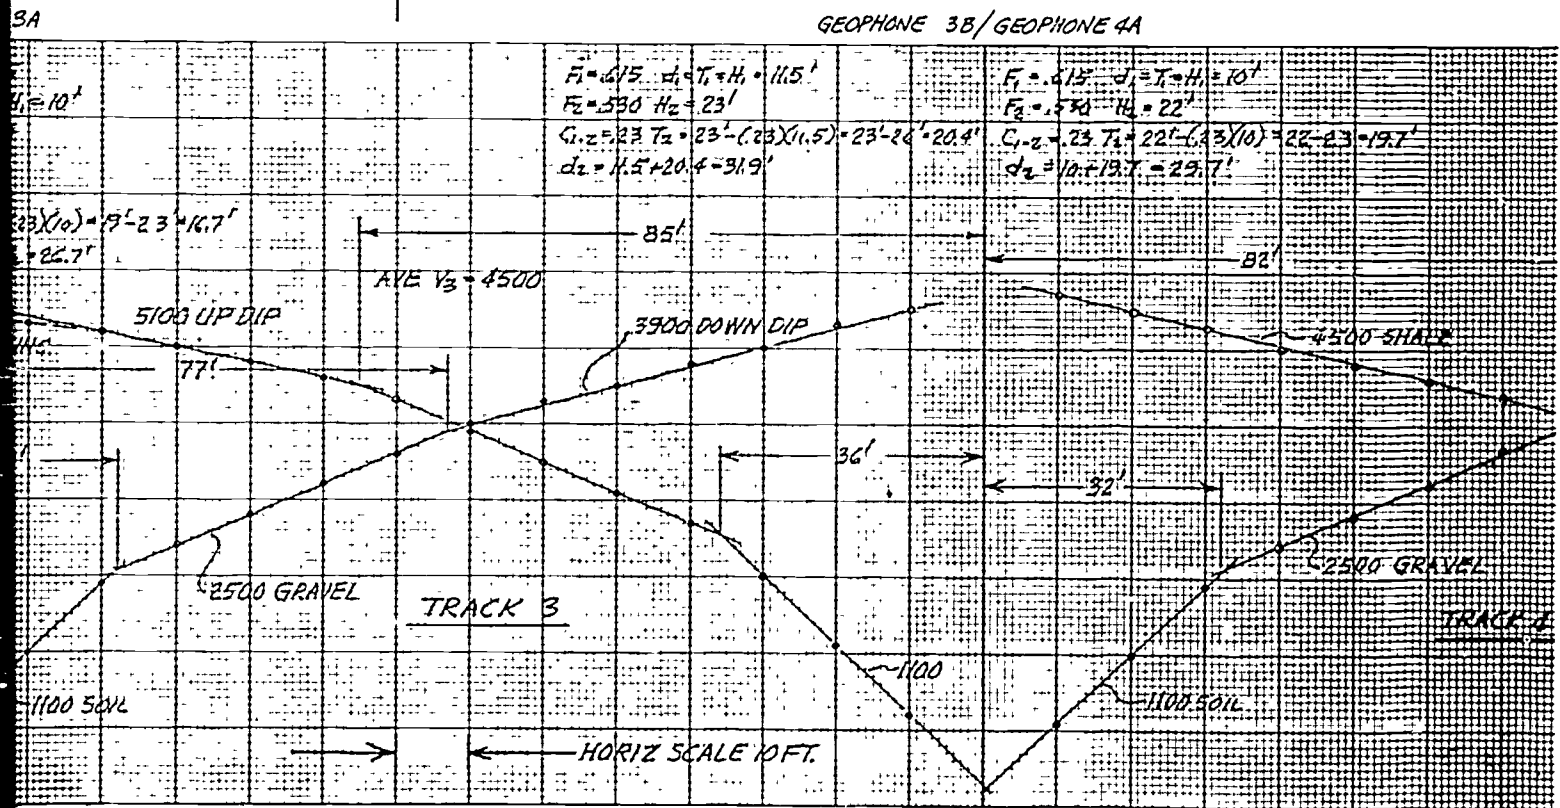 3A
GEOPHONE 3B/GEOPHONE 4A
H₁ = 10'
F₁ = .615 d₁ = T₁ = H₁ = 11.5'
F₂ = .530 H₂ = 23'
C₁₋₂ = .23 T₂ = 23' - (.23)(11.5) = 23' - 2.6' = 20.4'
d₂ = 11.5 + 20.4 = 31.9'
F₁ = .615 d₁ = T₁ = H₁ = 10'
F₂ = .530 H₂ = 22'
C₁₋₂ = .23 T₂ = 22' - (.23)(10) = 22 - 2.3 = 19.7'
d₂ = 10 + 19.7 = 29.7'
23)(10) = 19' - 2.3' = 16.7'
= 26.7'
85'
82'
AVE V₃ = 4500
5100 UP DIP
3900 DOWN DIP
4500 SHALE
77'
36'
32'
2500 GRAVEL
2500 GRAVEL
TRACK 3
TRACK 4
1100
1100 SOIL
1100 SOIL
HORIZ SCALE 10 FT.